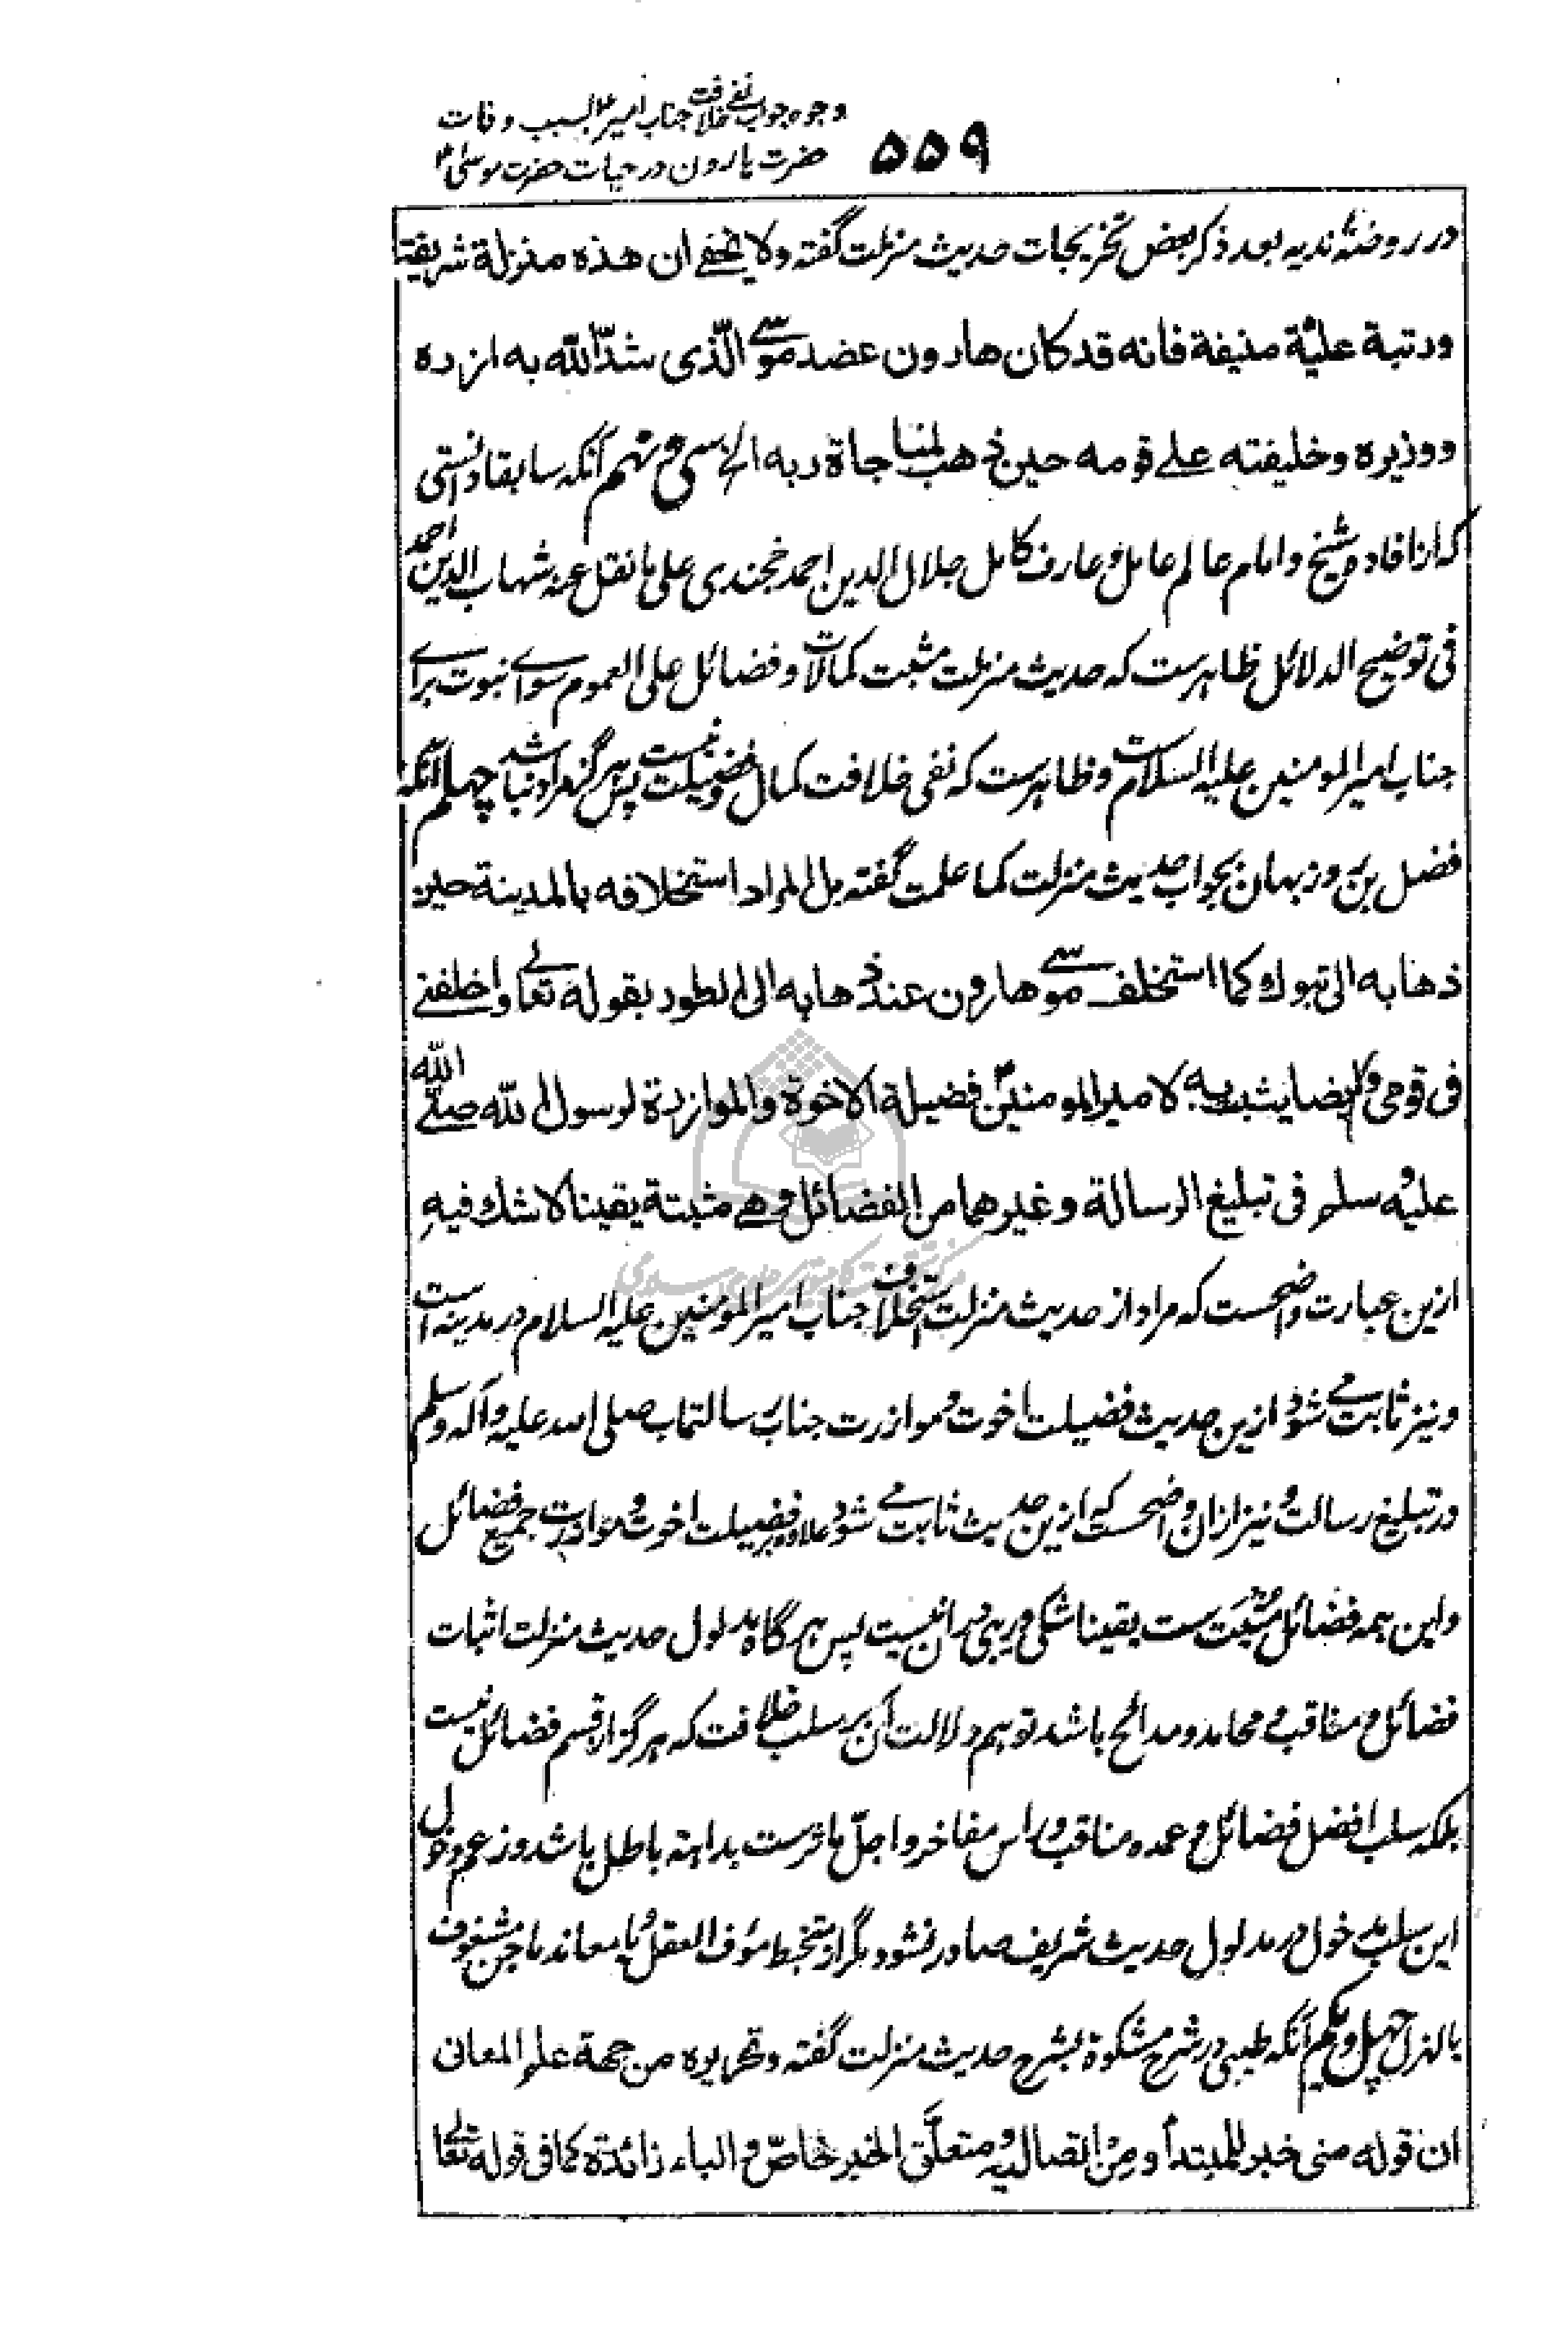 وجوه جواب نفی خلافت جناب امیرؑ بسبب وفات
حضرت هارون در حیات حضرت موسیٰؑ
۵۵۹
در روضۀ ندیه بعد ذکر بعض تخریجات حدیث منزلت گفته ولا یخفے ان هذه منزلة شریفة
ورتبة علیّة منیفة فانه قد کان هارون عضد موسے الّذی شدّ الله به ازره
ووزیره وخلیفته علے قومه حین ذهب لمناجاة ربه الخ سی و نهم آنکه سابقا دانستی
که از افاده شیخ و امام عالم عامل و عارف کامل جلال الدین احمد خجندی علی ما نقل عنه شهاب الدین احمد
فی توضیح الدلائل ظاهرست که حدیث منزلت مثبت کمالات و فضائل علی العموم سوای نبوت برای
جناب امیر المومنین علیه السلام ست و ظاهرست که نفی خلافت کمال و فضیلت نیست پس هرگز مراد نباشد چهلم آنکه
فضل بن روزبهان بجواب حدیث منزلت کما علمت گفته بل المراد استخلافه بالمدینة حین
ذهابه الی تبوک کما استخلف موسے هارون عند ذهابه الی الطور بقوله تعالے واخلفنے
فی قومی وایضا یثبت به لامیر المومنینؑ فضیلة الاخوة والموازرة لرسول الله صلے الله
علیه وسلم فی تبلیغ الرسالة وغیرهما من الفضائل وهے مثبتة یقینا لا شک فیه
ازین عبارت واضحست که مراد از حدیث منزلت استخلاف جناب امیر المومنین علیه السلام در مدینه است
و نیز ثابت مے شود ازین حدیث فضیلت اخوت و موازرت جناب رسالتماب صلی الله علیه و آله وسلم
در تبلیغ رسالت و نیز ازان واضحست که ازین حدیث ثابت مے شود علاوه بر فضیلت اخوت و موازرت جمیع فضائل
و این همه فضائل مثبت ست یقینا شکی و ریبی در ان نیست پس هر گاه مدلول حدیث منزلت اثبات
فضائل و مناقب و محامد و مدائح باشد توهم دلالت آن بر سلب خلافت که هرگز از قسم فضائل نیست
بلکه سلب افضل فضائل و عمده مناقب و راس مفاخر و اجلّ مآثرست بداهة باطل باشد و زعم دخول
این سلب مدخول در مدلول حدیث شریف صادر نشود مگر از متخبط مؤف العقل و یا معاند ماجن مشغوف
بالهزل چهل و یکم آنکه طیبی در شرح مشکوة بشرح حدیث منزلت گفته وتحریره من جهة علم المعانی
ان قوله منی خبر للمبتدأ ومِن اتصالیه ومتعلّق الخبر خاصّ والباء زائدة کما فی قوله تعالے